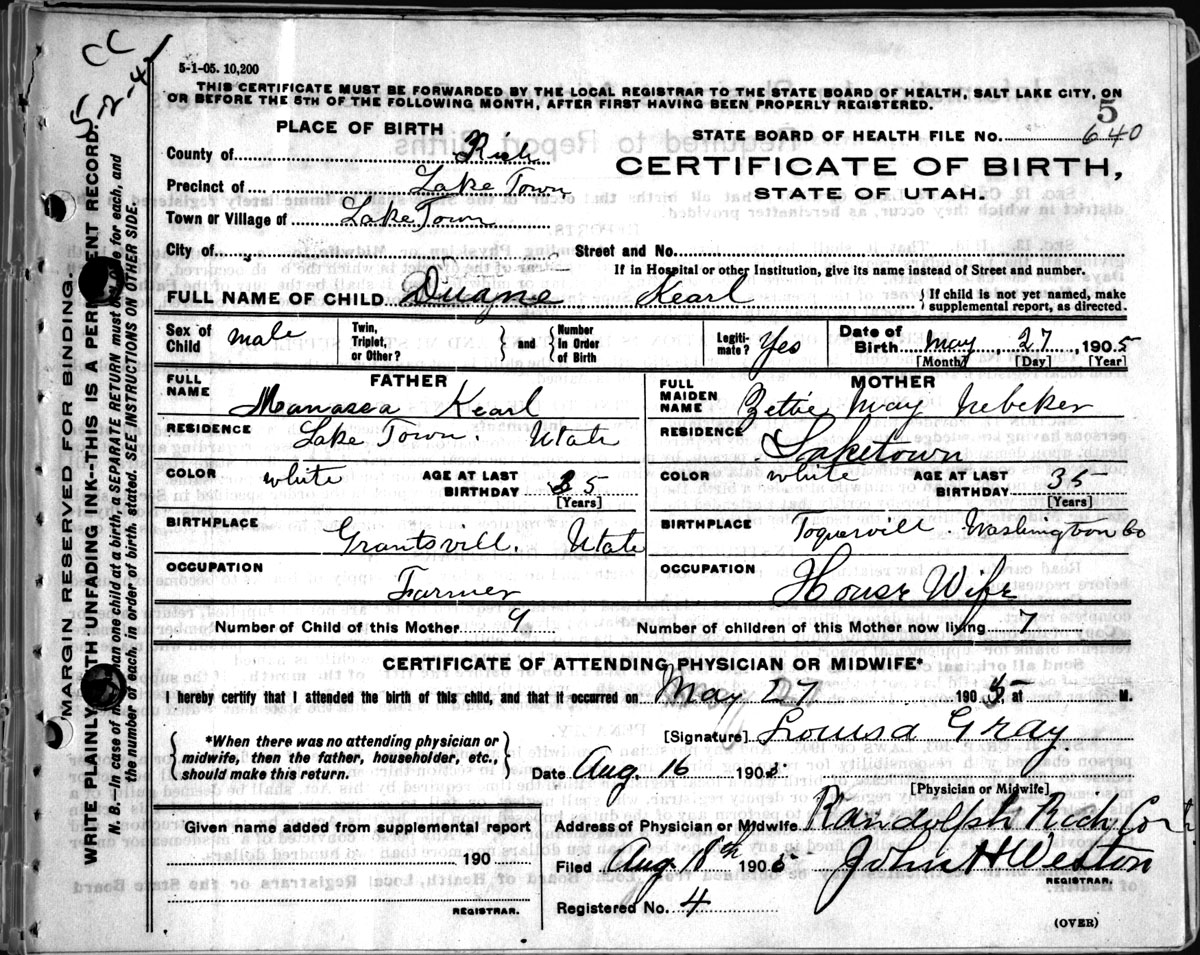 CC
5-2-4
5-1-05. 10,200
THIS CERTIFICATE MUST BE FORWARDED BY THE LOCAL REGISTRAR TO THE STATE BOARD OF HEALTH, SALT LAKE CITY, ON
OR BEFORE THE 5TH OF THE FOLLOWING MONTH, AFTER FIRST HAVING BEEN PROPERLY REGISTERED.
5
PLACE OF BIRTH
STATE BOARD OF HEALTH FILE No. 640
County of Rich
CERTIFICATE OF BIRTH,
Precinct of Lake Town
STATE OF UTAH.
Town or Village of Lake Town
City of Street and No.
If in Hospital or other Institution, give its name instead of Street and number.
FULL NAME OF CHILD. Duane Kearl } If child is not yet named, make supplemental report, as directed.
Sex of Child male Twin, Triplet, or Other? } and { Number in Order of Birth Legitimate? Yes Date of Birth May, 27, 1905
[Month] [Day] [Year]
FATHER MOTHER
FULL NAME Manassa Kearl FULL MAIDEN NAME Zettie May Nebeker
RESIDENCE Lake Town. Utah RESIDENCE Laketown
COLOR white AGE AT LAST BIRTHDAY 35 [Years] COLOR white AGE AT LAST BIRTHDAY 35 [Years]
BIRTHPLACE Grantsvill. Utah BIRTHPLACE Toquervill Washington Co
OCCUPATION Farmer OCCUPATION House Wife
Number of Child of this Mother 9 Number of children of this Mother now living 7
CERTIFICATE OF ATTENDING PHYSICIAN OR MIDWIFE*
I hereby certify that I attended the birth of this child, and that it occurred on May 27 1905 at M.
{ *When there was no attending physician or midwife, then the father, householder, etc., should make this return. }
[Signature] Louisa Gray
Date Aug. 16 1905
[Physician or Midwife]
Given name added from supplemental report
190
REGISTRAR.
Address of Physician or Midwife Randolph Rich Co
Filed Aug 18th 1905 John H Weston
REGISTRAR.
Registered No. 4
(OVER)
MARGIN RESERVED FOR BINDING.
WRITE PLAINLY WITH UNFADING INK--THIS IS A PERMANENT RECORD.
N. B.--In case of more than one child at a birth, a SEPARATE RETURN must be made for each, and
the number of each, in order of birth, stated. SEE INSTRUCTIONS ON OTHER SIDE.